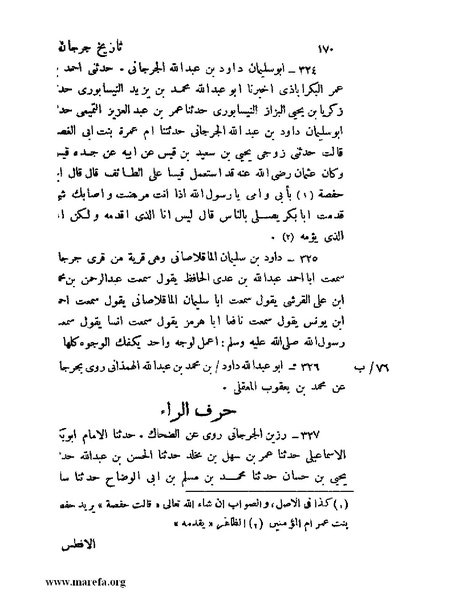 ١٧٠ تاريخ جرجان
٣٢٤ ـ ابوسليمان داود بن عبدالله الجرجانى ـ حدثنى احمد
عمر البكراباذى اخبرنا ابوعبدالله محمد بن يزيد النيسابورى
زكريا بن يحيى البزاز النيسابورى حدثنا عمر بن عبد العزيز التميمى
ابوسليمان داود بن عبد الله الجرجانى حدثتنا ام عمرة بنت ابى
قالت حدثنى زوجى يحيى بن سعيد بن قيس عن ابيه عن جده قيس
وكان عثمان رضى الله عنه قد استعمل قيسا على الطائف قال قال
حفصة (١) بأبى وامى يا رسول الله اذا انت مرضت واصابك
قدمت ابا بكر يصلى بالناس قال ليس انا الذى اقدمه ولكن
الذى يؤمه (٢) .
٣٢٥ ـ داود بن سليمان الماقلاصانى وهى قرية من قرى
سمعت ابا احمد عبدالله بن عدى الحافظ يقول سمعت عبدالرحمن بن
ابن على القرشى يقول سمعت ابا سليمان الماقلاصانى يقول سمعت
ابن يونس يقول سمعت نافعا ابا هرمز يقول سمعت انسا يقول
رسول الله صلى الله عليه وسلم : اعمل لوجه واحد يكفك الوجوه كلها
٧٦/ب ٣٢٦ ـ ابو عبدالله داود / بن محمد بن عبدالله الهمذانى روى
عن محمد بن يعقوب المعقلى .
حرف الراء
٣٢٧ ـ رزين الجرجانى روى عن الضحاك ـ حدثنا الامام
الاسماعيلى حدثنا عمر بن سهل بن مخلد حدثنا الحسن بن عبدالله
يحيى بن حسان حدثنا محمد بن مسلم بن ابى الوضاح حدثنا
(١) كذا فى الاصل، والصواب إن شاء الله تعالى « قالت حفصة » يريد
بنت عمر ام المؤمنين (٢) الظاهر « يقدمه »
الافطس
www.marefa.org